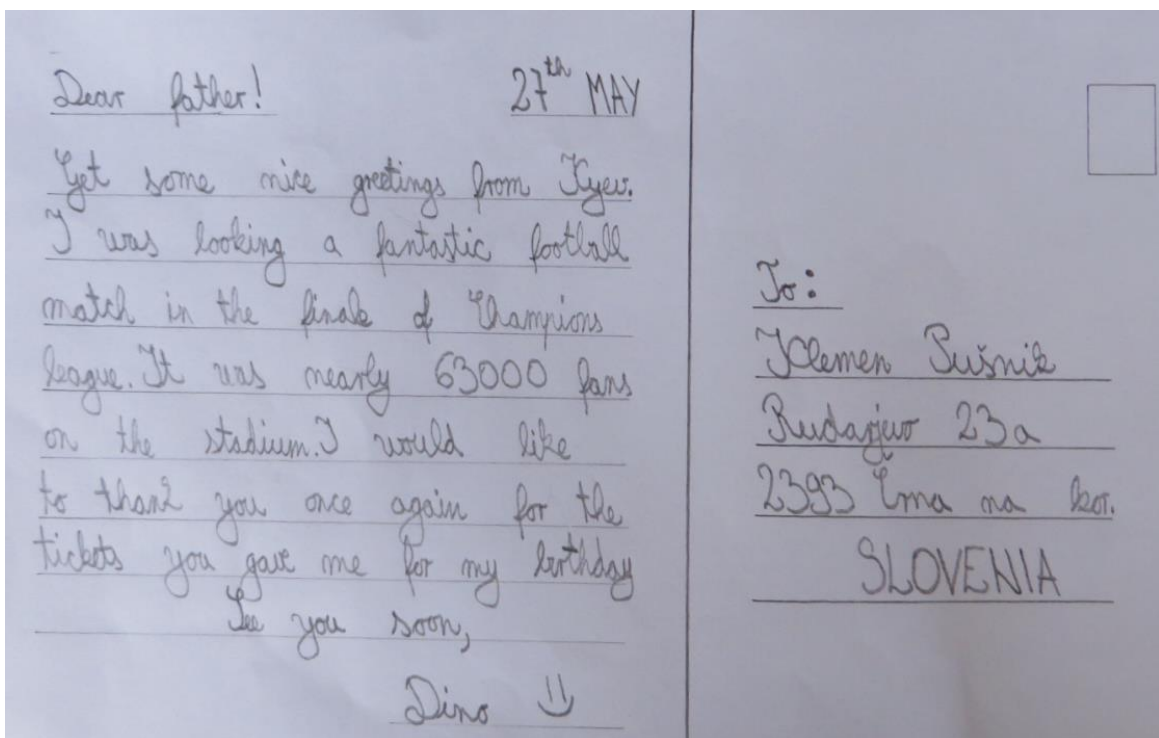 Dear father!
27th MAY
Get some nice greetings from Kyev.
I was looking a fantastic football
match in the finale of Champions
league. It was nearly 63000 fans
on the stadium. I would like
to thank you once again for the
tickets you gave me for my birthday
See you soon,
Dino
To:
Klemen Pušnik
Rudarjevo 23a
2393 Črna na kor.
SLOVENIA